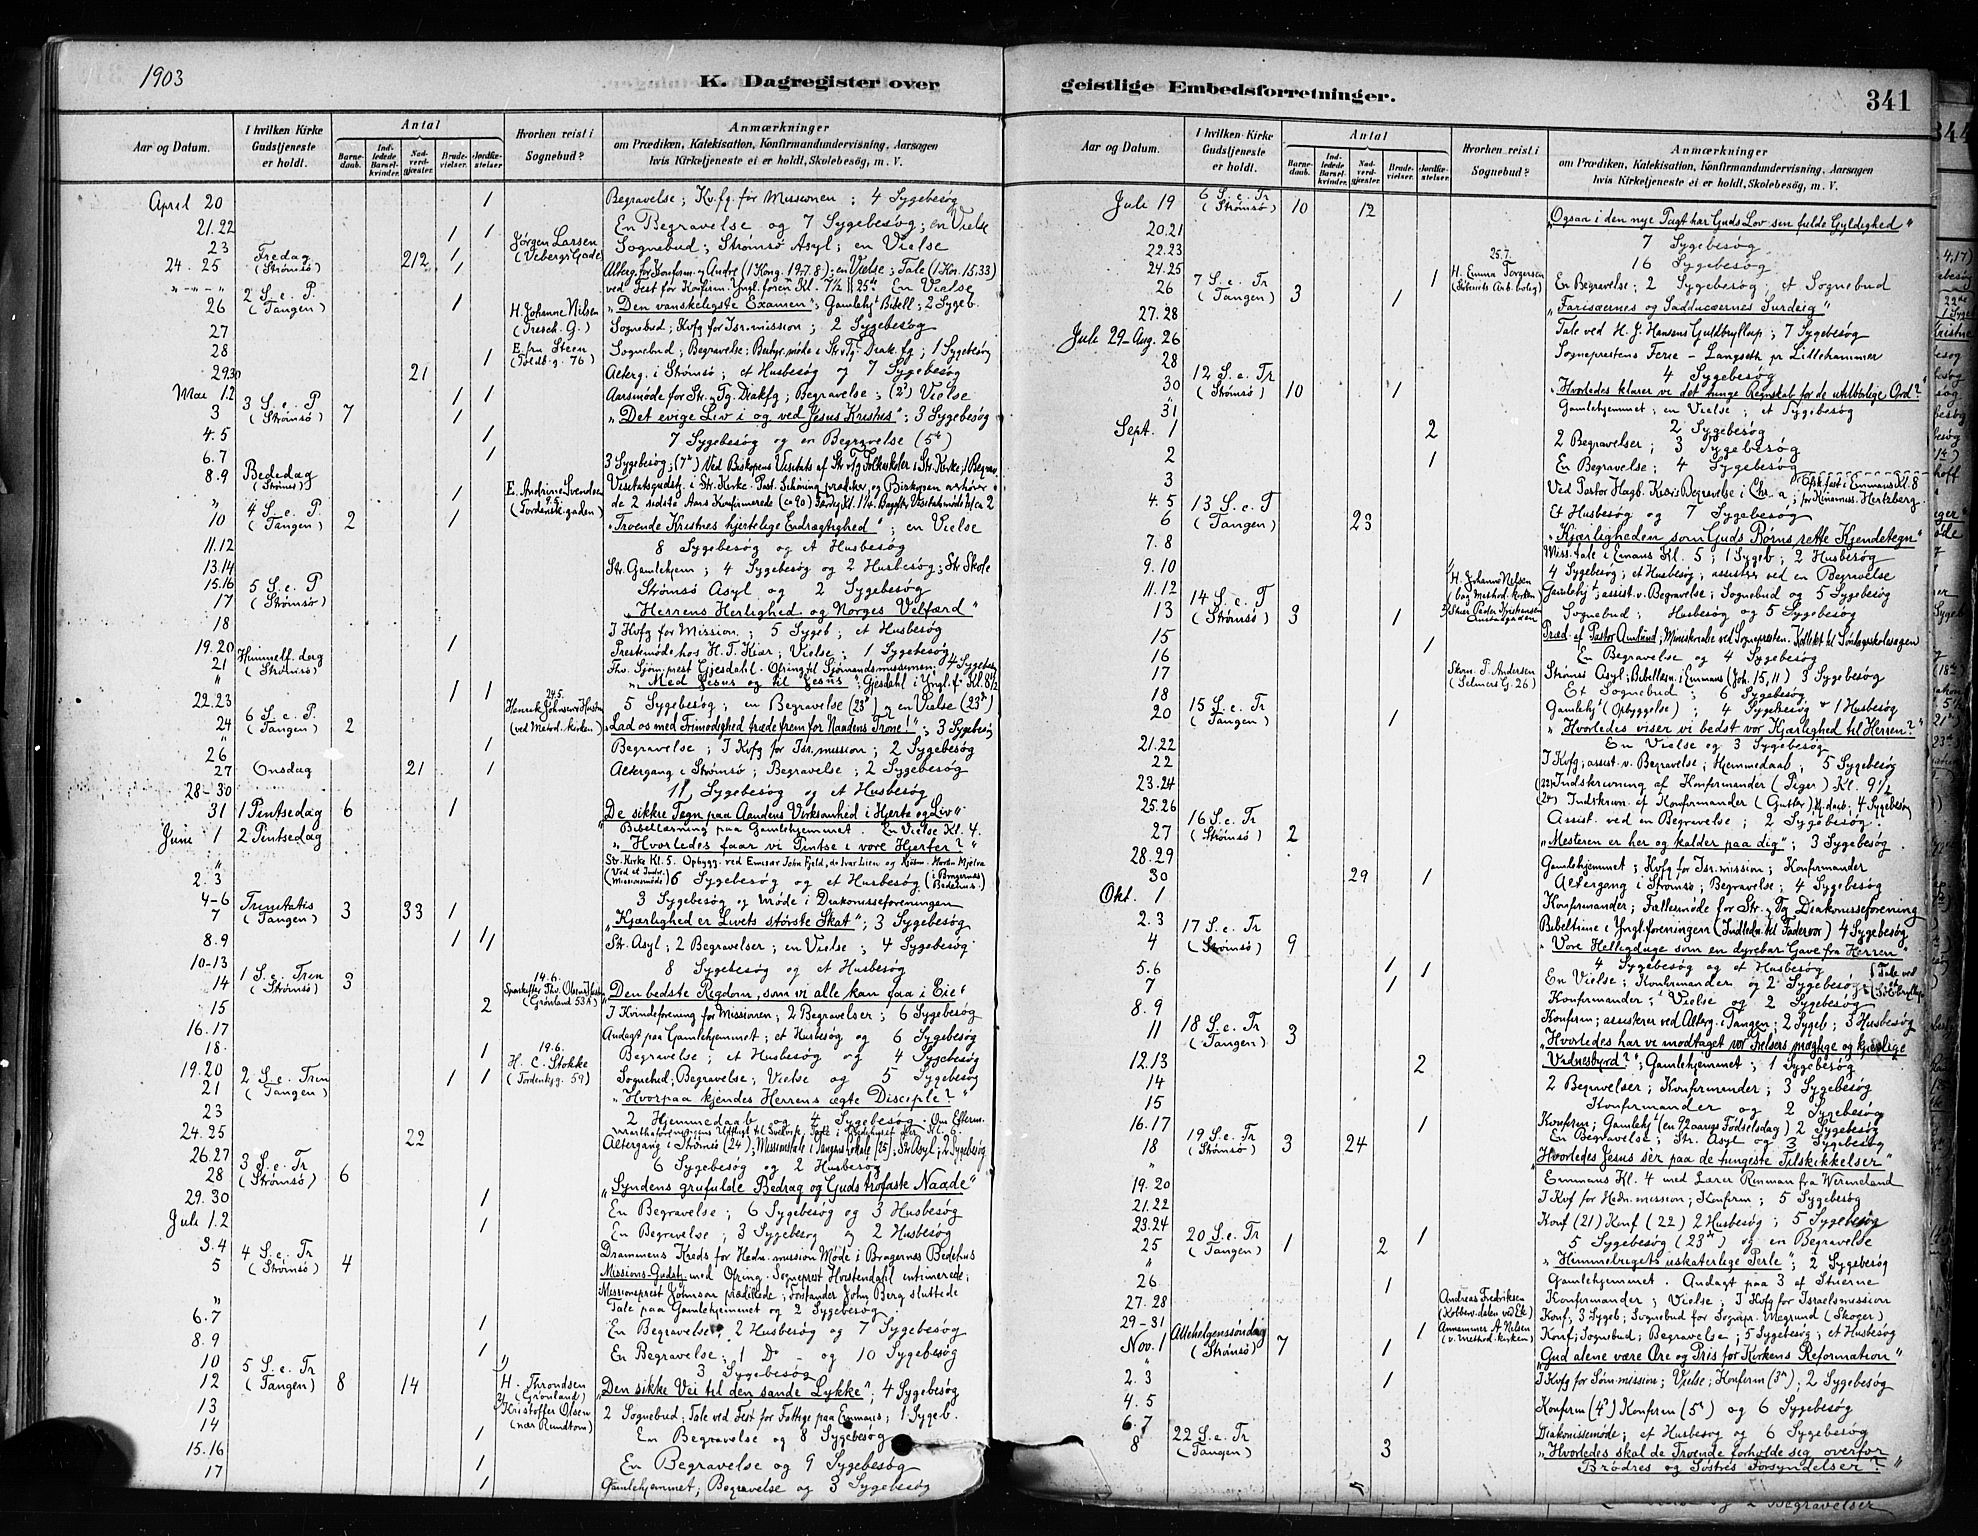 1903
K. Dagregister over
Aar og Datum.
I hvilken Kirke Gudstjeneste er holdt.
Antal
Barnedaab.
Indledede Barselkvinder.
Nadverdgjæster.
Brudevielser.
Jordfæstelser
Hvorhen reist i Sognebud?
Anmærkninger
om Prædiken, Katekisation, Konfirmandundervisning, Aarsagen
hvis Kirketjeneste ei er holdt, Skolebesøg, m. V.
April 20 1 Begravelse; Kvfg. for Missionen; 4 Sygebesøg
21.22 1 1 En Begravelse og 7 Sygebesøg; en Vielse
23 Jørgen Larsen Sognebud; Strømsø Asyl; en Vielse
24. 25 Fredag (Strømsø) 212 1 Alterg. for Konfirm. og Andre (1 Kong. 19.7.8); en Vielse; Tale (1 Kor. 15.33)
26 2 S. e. P. (Tangen) 1 "Den vanskeligste Examen"; Gamlehj. Bibell; 2 Sygeb.
27 H. Johanne Nilsen (Tresch. G.) Sognebud; Kvfg for Isr. mission; 2 Sygebesøg
28 1 E. fru Steen (Toldb.g. 76) Sognebud; Begravelse; 1 Sygebesøg
29.30 21 Alterg. i Strømsø; et Husbesøg og 7 Sygebesøg
Mai 1.2 1 1 Aarsmøde for Str. og Tg. Diakfg; Begravelse; (2) Vielse
3 3 S. e. P (Strømsø) 7 1 "Det evige Liv i og ved Jesus Kristus"; 3 Sygebesøg
4.5 1 7 Sygebesøg og en Begravelse (5te)
6.7 1 3 Sygebesøg; (7de) Ved Biskopens Visitats af Str. og Tg Folkeskoler i Str. Kirke; 1 Begrav.
8.9 Bededag (Strømsø) 1 E. Andrine Svendsen 9.5. (Tordensk.gaden) Visitatsgudstj. i Str. Kirke. Past. Schøning prædiker og Biskopen
10 4 S. e. P. (Tangen) 2 1 "Troende Kristnes hjertelige Endrægtighed"; en Vielse
11.12 8 Sygebesøg og et Husbesøg
13.14 Str. Gamlehjem; 4 Sygebesøg og 2 Husbesøg; Str Skole
15.16 Strømsø Asyl og 2 Sygebesøg
17 5 S. e. P (Strømsø) "Herrens Herlighed og Norges Velfærd"
18 I Kvfg for Mission; 5 Sygeb; et Husbesøg
19.20 1 Prestemøde hos H. T. Kiær; Vielse; 1 Sygebesøg
21 Himmelf. dag (Strømsø) Thv. Sjøm. prest Gjesdahl. Ofring til Sjømandsmissionen; 4 Sygebesøg
" "Med Jesus og til Jesus"; Gjesdahl i Yngl. f. Kl. 8½
22.23 1 1 5 Sygebesøg; en Begravelse (23de) og en Vielse (23de)
24 6 S. e. P. (Tangen) 2 24.5. (ved Metod. kirken) "Lad os med Frimodighed træde frem for Naadens Trone!"; 3 Sygebesøg
26 1 Begravelse; I Kvfg for Isr. mission; 2 Sygebesøg
27 Onsdag 21 1 Altergang i Strømsø; Begravelse; 2 Sygebesøg
28-30 11 Sygebesøg og et Husbesøg
31 1 Pintsedag 6 1 "De sikre Tegn paa Aandens Virksomhed i Hjerte og Liv"
Bibellæsning paa Gamlehjemmet. En Vielse Kl. 4.
Juni 1 2 Pintsedag "Hvorledes faar vi Pintse i vore Hjerter?"
" Str. Kirke Kl. 5. Opbygg. ved Emisær John Fjeld, do Ivar Lien og Kjøbm. Martin Mjelva
2. 3 6 Sygebesøg og et Husbesøg (i Bragernes Bedehus.)
4-6 3 Sygebesøg og Møde i Diakonisseforeningen
7 Trinitatis (Tangen) 3 33 1 "Kjærlighed er Livets største Skat"; 3 Sygebesøg
8.9 1 1/1 Str. Asyl; 2 Begravelser; en Vielse; 4 Sygebesøg
10-13 8 Sygebesøg og et Husbesøg
14 1 S. e. Trin (Strømsø) 3 14.6. (Grønland 53A) "Den bedste Rigdom, som vi alle kan faa i Eie"
15 2 I Kvindeforening for Missionen; 2 Begravelser; 6 Sygebesøg
16.17 Andagt paa Gamlehjemmet; et Husbesøg og 6 Sygebesøg
18. 1 Begravelse; et Husbesøg og 4 Sygebesøg
19.20 1 1 19.6. H. C. Stokke (Tordenskg. 59) Sognebud, Begravelse; Vielse og 5 Sygebesøg
21 2 S. e. Trin (Tangen) "Hvorpaa kjendes Herrens ægte Disciple?"
23 2 Hjemmedaab og 4 Sygebesøg. Om Efterm.
24.25 22 Altergang i Strømsø (24); Missionstale i Tangens Lokale (25); Str Asyl; 2 Sygebesøg
26.27 6 Sygebesøg og 2 Husbesøg
28 3 S. e. Tr (Strømsø) 6 "Syndens grufulde Bedrag og Guds trofaste Naade"
29.30 1 En Begravelse; 6 Sygebesøg og 3 Husbesøg
Juli 1.2 1 En Begravelse; 3 Sygebesøg og 2 Husbesøg
3.4 Drammens Kreds for Hedn. mission Møde i Bragernes Bedehus
5 4 S. e. Tr. (Strømsø) 4 Missions-Gudstj. med Ofring. Sogneprest Horstendahl intimerede;
Missionsprest Johnson prædikede; Forstander John Berg sluttede
" Tale paa Gamlehjemmet og 2 Sygebesøg.
6.7 1 En Begravelse; 2 Husbesøg og 7 Sygebesøg
8.9 1 En Begravelse; 1 Do - og 10 Sygebesøg
10 3 Sygebesøg
12 5 S. e. Tr (Tangen) 8 14 H. Throndsen (Grønland) "Den sikre Vei til den sande Lykke"; 4 Sygebesøg
13 Kristoffer Olsen (nær Rundtom) 2 Sognebud; Tale ved Fest for Fattige paa Emmaus; 1 Sygeb.
14 1 En Begravelse og 8 Sygebesøg
15.16 1 En Begravelse og 9 Sygebesøg
17 1 Gamlehjemmet; Begravelse og 3 Sygebesøg
geistlige Embedsforretninger.
341
Aar og Datum.
I hvilken Kirke Gudstjeneste er holdt.
Antal
Barnedaab.
Indledede Barselkvinder.
Nadverdgjæster.
Brudevielser.
Jordfæstelser.
Hvorhen reist i Sognebud?
Anmærkninger
om Prædiken, Katekisation, Konfirmandundervisning, Aarsagen
hvis Kirketjeneste ei er holdt, Skolebesøg, m. V.
Juli 19 6 S. e. Tr (Strømsø) 10 12 "Ogsaa i den nye Pagt har Guds Lov sin fulde Gyldighed"
20.21 7 Sygebesøg
22.23 16 Sygebesøg
24.25 1 25.7. H. Emma Torgersen En Begravelse; 2 Sygebesøg; et Sognebud
26 7 S. e. Tr (Tangen) 3 1 "Farisæernes og Sadducæernes Surdeig"
27.28 Tale ved H. J. Hansens Guldbryllup; 7 Sygebesøg
Juli 29-Aug. 26 Sogneprestens Ferie - Langseth pr Lillehammer
28 4 Sygebesøg
30 12 S. e. Tr (Strømsø) 10 1 "Hvorledes klarer vi det tunge Regnskab for de utilbørlige Ord?"
" Gamlehjemmet; en Vielse; et Sygebesøg
31 2 Sygebesøg
Sept. 1 2 2 Begravelser; 3 Sygebesøg
2 1 En Begravelse; 4 Sygebesøg
3 Ved Pastor Hagb. Kiærs Begravelse i Chr.a; Afsk.fest i Emmaus Kl. 8 for Kinamiss. Hertzberg.
4.5 Et Husbesøg og 7 Sygebesøg
6 13 S. e. T (Tangen) 23 "Kjærligheden som Guds Børns rette Kjendetegn"
7. 8 Miss. tale i Emaus Kl. 5; 1 Sygeb; 2 Husbesøg
9. 10 4 Sygebesøg; et Husbesøg; assisterer ved en Begravelse
11.12 H. Johanne Nilsen (bag Method. kirken) Gamlehj; assist. v. Begravelse; Sognebud og 5 Sygebesøg
13 14 S. e. T (Strømsø) 3 1 Sognebud; Husbesøg og 5 Sygebesøg
Præd. af Pastor Amlund; Minskrabe ved Sognepresten. Kollekt til Søndagsskolesagen
15 1 En Begravelse og 4 Sygebesøg
16 Strømsø Asyl; Bibellæsn. i Emmaus (Joh. 15, 11) 3 Sygebesøg
17 Skom. T. Andersen (Selmers G. 26) Et Sognebud; 6 Sygebesøg
18 Gamlehj. (Opbyggelse); 4 Sygebesøg + 1 Husbesøg
20 15 S. e. Tr (Tangen) 1 "Hvorledes viser vi bedst vor Kjærlighed til Herren?"
En Vielse og 3 Sygebesøg
21.22 I Kvfg; assist. v. Begravelse; Hjemmedaab; 5 Sygebesøg
22 (22) Indskrivning af Konfirmander (Piger) Kl. 9½
23.24 Indskrivn. af Konfirmander (Gutter) Hj. daab; 4 Sygebesøg
25.26 Assist. ved en Begravelse; 2 Sygebesøg.
27 16 S. e. Tr (Strømsø) 2 "Mesteren er her og kalder paa dig"; 3 Sygebesøg.
28.29 Gamlehjemmet; Kvfg for Isr. mission; Konfirmander
30 29 1 Altergang i Strømsø; Begravelse; 4 Sygebesøg
Okt. 1 Konfirmander; Fællesmøde for Str. og Tg Diakonisseforening
2. 3 Bibeltime i Yngl. foreningen (Indledn. til Fadervor) 4 Sygebesøg
4 17 S. e. Tr (Strømsø) 9 "Vore Helligdage som en dyrebar Gave fra Herren"
5.6 1 1 4 Sygebesøg og et Husbesøg
7 1 En Vielse; Konfirmander og 2 Sygebesøg (Tale ved Sølvbryllup)
8. 9 Konfirmander; Vielse og 2 Sygebesøg
Konfirm; assisterer ved Alterg. i Tangen; 2 Sygeb; 3 Husbesøg
11 18 S. e. Tr (Tangen) 3 "Hvorledes har vi modtaget vor Frelsers mægtige og kjærlige
12.13 2 Vidnesbyrd?"; Gamlehjemmet; 1 Sygebesøg
14 2 Begravelser; Konfirmander; 3 Sygebesøg
15 Konfirmander og 2 Sygebesøg
16.17 1 Konfirm; Gamlehj. (en 92aarigs Fødselsdag) 2 Sygebesøg
En Begravelse; Str. Asyl og 3 Sygebesøg
18 19 S. e. Tr (Strømsø) 3 24 "Hvorledes Jesus ser paa de tungeste Tilskikkelser"
" Emmaus Kl. 4 med Lærer Rinman fra Wermeland
19.20 I Kvf for Hedn. mission; Konfirm; 5 Sygebesøg
21.22 Konf (21) Konf (22) 2 Husbesøg; 5 Sygebesøg
23.24 1 5 Sygebesøg (23de) og en Begravelse
25 20 S. e. Tr (Tangen) 1 2 "Himmelrigets uskaterlige Perle"; 2 Sygebesøg
" Gamlehjemmet. Andagt paa 3 af Stuerne
26 1 Konfirmander; Vielse; I Kvfg for Israelsmission
27.28 Andreas Fredriksen Konf; 3 Sygeb; Sognebud for Sognepr. Wegrund (Skoger)
29-31 1 Annammer A. Nilsen (v. Method. kirken) Konf; Sognebud; Begravelse; 5 Sygebesøg; et Husbesøg
Nov. 1 Allehelgenssøndag (Strømsø) 7 1 "Gud alene være Ære og Pris for Kirkens Reformation"
2. 3 1 I Kvfg for Søm. mission; Vielse; Konfirm (3die); 2 Sygebesøg
4. 5 Konfirm (4de) Konfirm (5te) og 6 Sygebesøg
6.7 Diakonissemøde; et Husbesøg og 6 Sygebesøg
8 22 S. e. Tr (Tangen) 3 "Hvorledes skal de Troende forholde sig overfor
Brødres og Søstres Forsyndelser?"
2 Begravelser
344